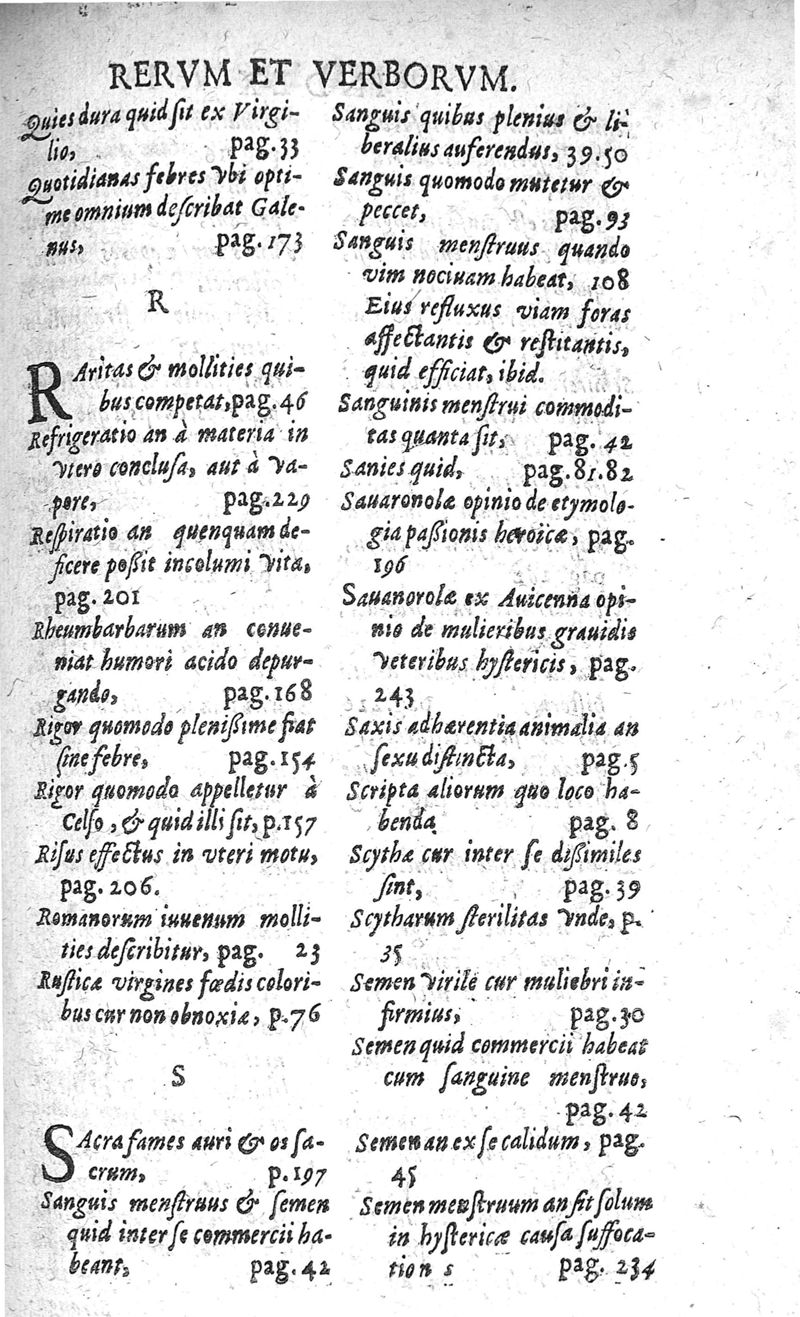 RERVM ET VERBORVM.
Quies dura quid ſit ex Virgi-
lio, pag.33
Quotidianas febres vbi opti-
me omnium deſcribat Gale-
nus, pag.173
R
RAritas & mollities qui-
bus competat, pag.46
Refrigeratio an à materia in
vtero concluſa, aut à va-
pore, pag.229
Reſpiratio an quenquam de-
ficere poßit incolumi vita,
pag. 201
Rheumbarbarum an conue-
niat humori acido depur-
gando, pag.168
Rigor quomodo plenißime fiat
ſine febre, pag.154
Rigor quomodo appelletur à
Celſo, & quid illi ſit, p.157
Riſus effectus in vteri motu,
pag. 206.
Romanorum iuuenum molli-
ties deſcribitur, pag. 23
Ruſticæ virgines fœdis colori-
bus cur non obnoxiæ, p.76
S
SAcra fames auri & os ſa-
crum, p.197
Sanguis menſtruus & ſemen
quid inter ſe commercii ha-
beant, pag.42
Sanguis quibus plenius & li-
beralius auferendus, 39.50
Sanguis quomodo mutetur &
peccet, pag.93
Sanguis menſtruus quando
vim nociuam habeat, 108
Eius refluxus viam foras
affectantis & reſtitantis,
quid efficiat, ibid.
Sanguinis menſtrui commodi-
tas quanta ſit, pag. 42
Sanies quid, pag.81.82
Sauaronolæ opinio de etymolo-
gia paßionis heroicæ, pag.
196
Sauanorolæ ex Auicenna opi-
nio de mulieribus grauidis
veteribus hyſtericis, pag.
243
Saxis adhærentia animalia an
ſexu diſtincta, pag.5
Scripta aliorum quo loco ha-
benda pag. 8
Scythæ cur inter ſe dißimiles
ſint, pag.39
Scytharum ſterilitas vnde, p.
35
Semen virile cur muliebri in-
firmius, pag.30
Semen quid commercii habeat
cum ſanguine menſtruo,
pag.42
Semen an ex ſe calidum, pag.
45
Semen menſtruum an ſit ſolum
in hyſtericæ cauſa ſuffoca-
tion s pag. 234